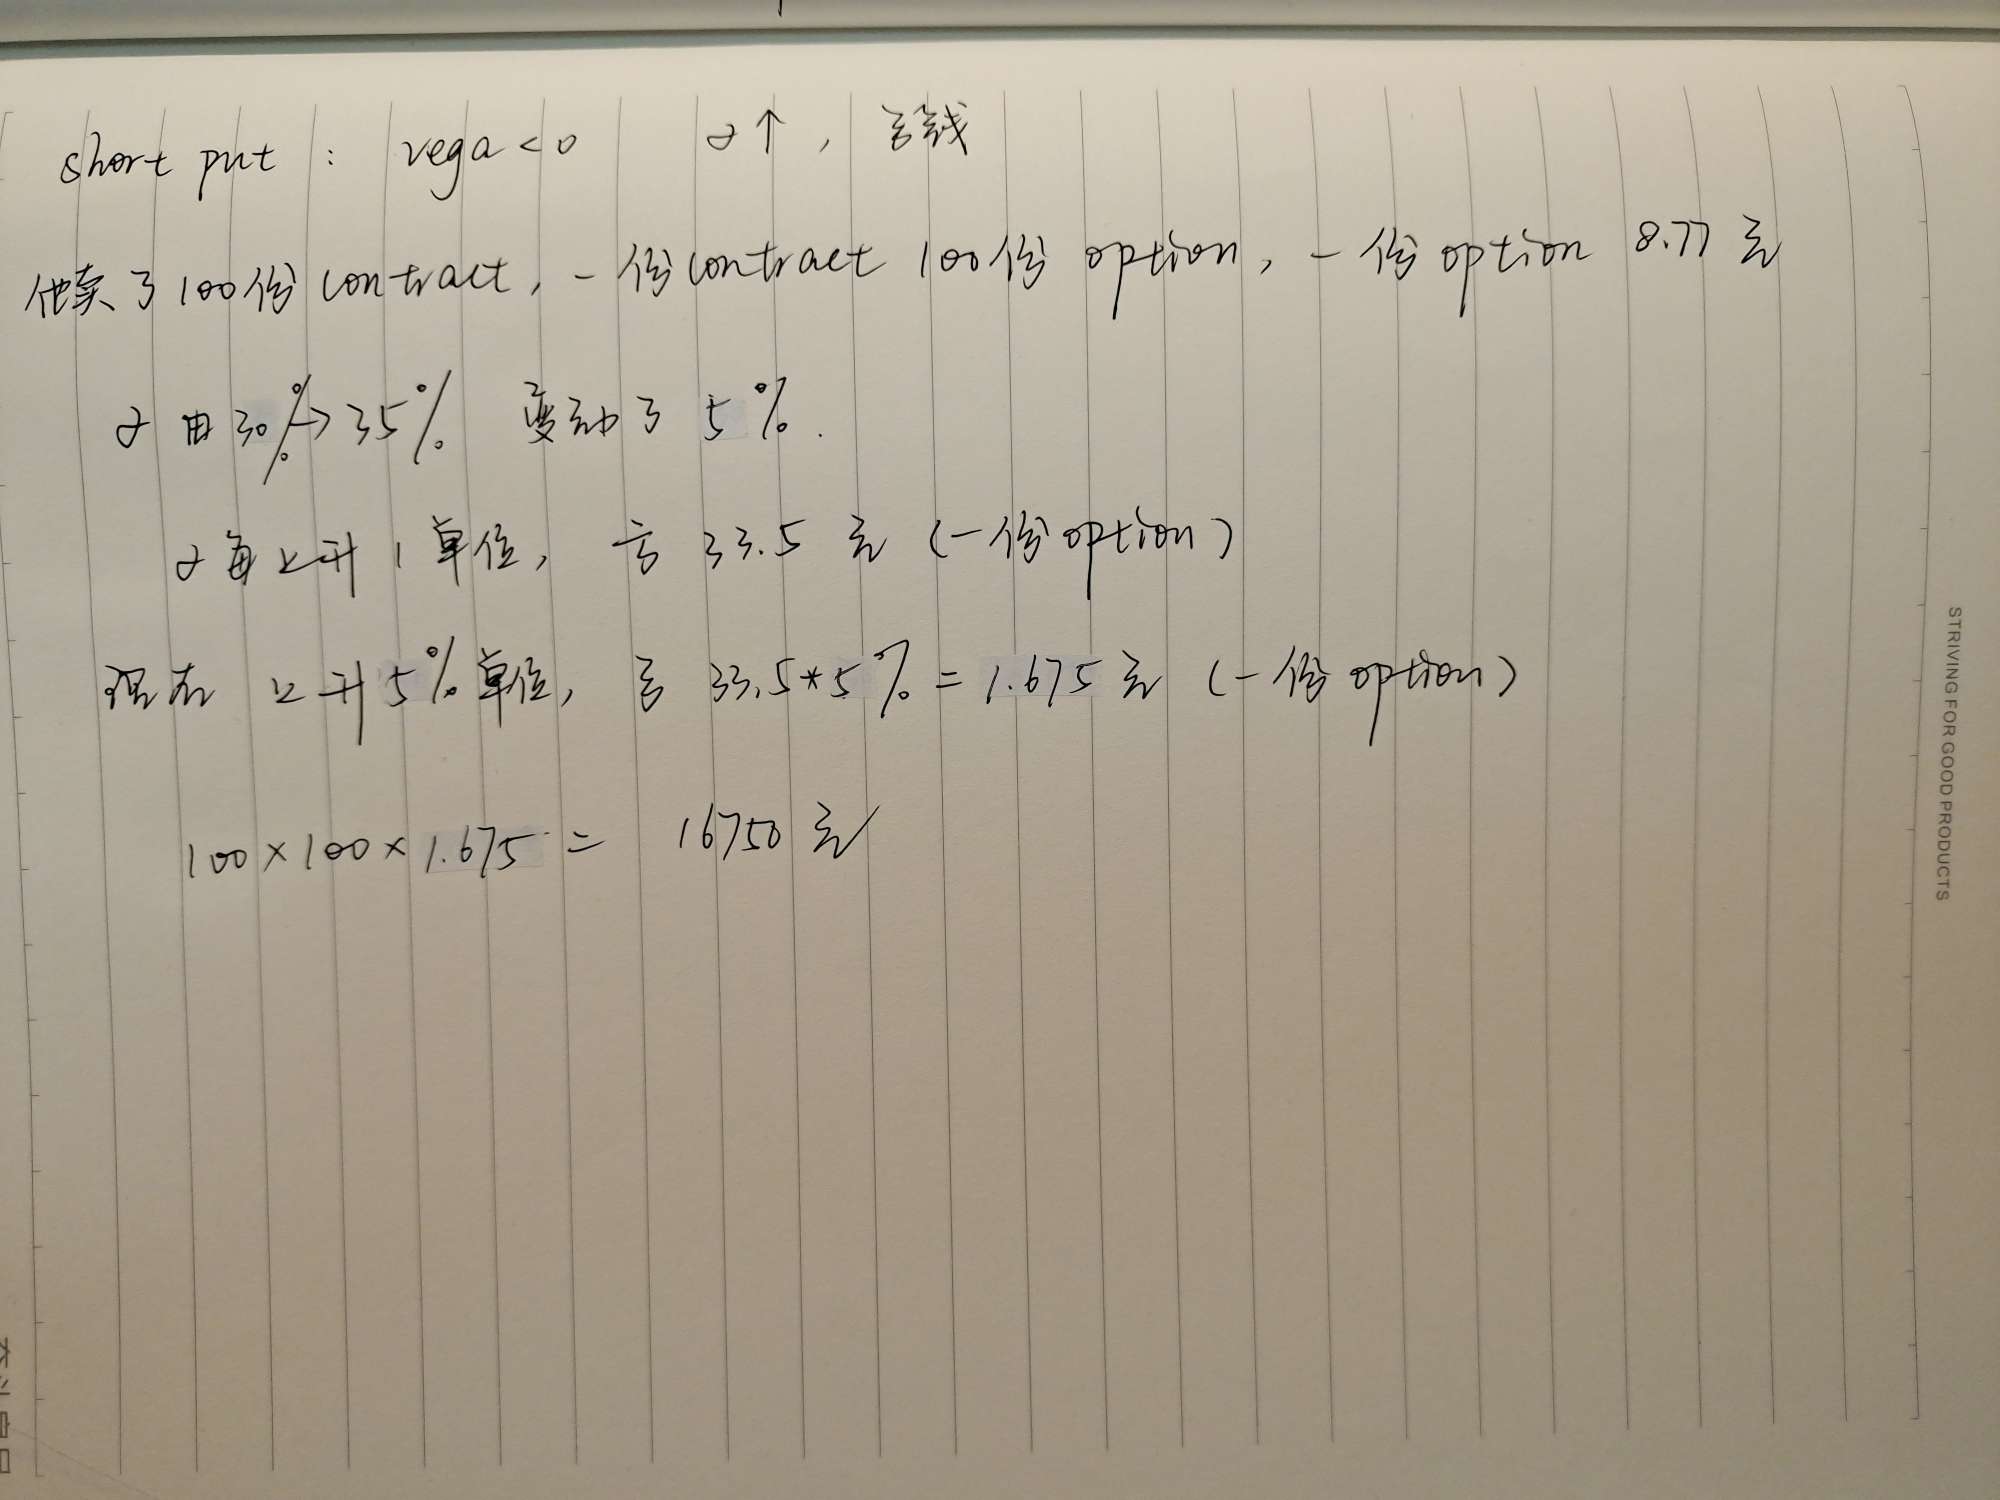 short put : vega<0 σ↑, 亏钱
他卖了100份contract, 一份contract 100份 option, 一份 option 8.77 元
σ 由30%→35% 变动了 5%.
σ每上升1单位, 亏 33.5 元 (一份option)
现在 上升5%单位, 亏 33.5*5%=1.675元 (一份option)
100×100×1.675= 16750元
STRIVING FOR GOOD PRODUCTS